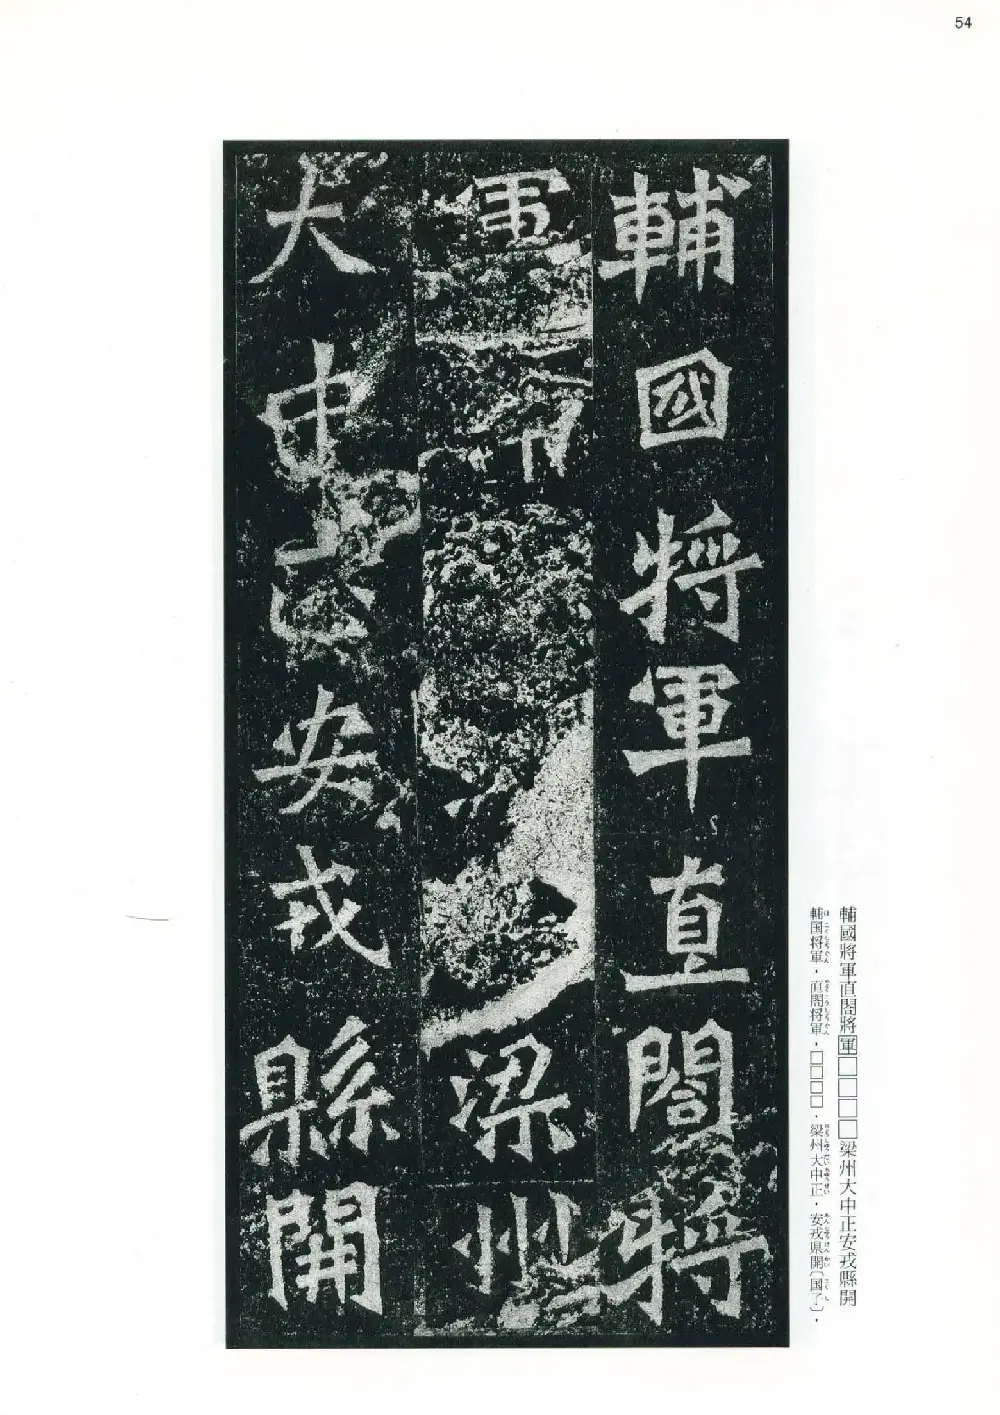 54
輔國將軍直閤將
軍
梁州
大中正安戎縣開
輔國將軍直閤將軍□□□□梁州大中正安戎縣開
輔国将軍・直閤将軍・□□□□・梁州大中正・安戎県開〔国子〕・